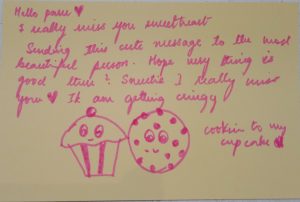 Hello
I really miss you sweetheart
Sending this cute message to the most
beautiful person. Hope every thing is
good there ? Sweetie I really miss
you ♥ Ik am getting cringy
cookie to my
cupcake ♥